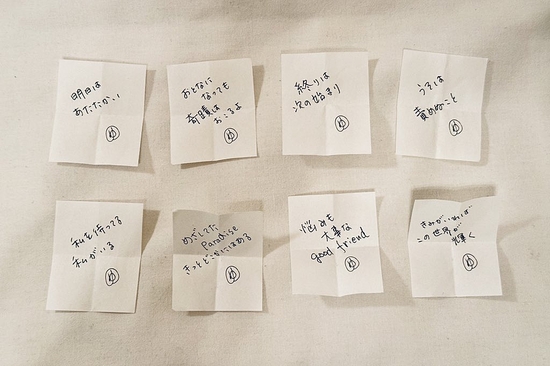 明日は
あたたかい
ゆ
おとなに
なっても
奇蹟は
おこるよ
ゆ
終りは
次の始まり
ゆ
うそは
責めぬこと
ゆ
私を待ってる
私がいる
ゆ
めざしてた
Paradise
きっとどこかにはある
ゆ
悩みも
大事な
good friend
ゆ
きみがいれば
この世界が
輝く
ゆ